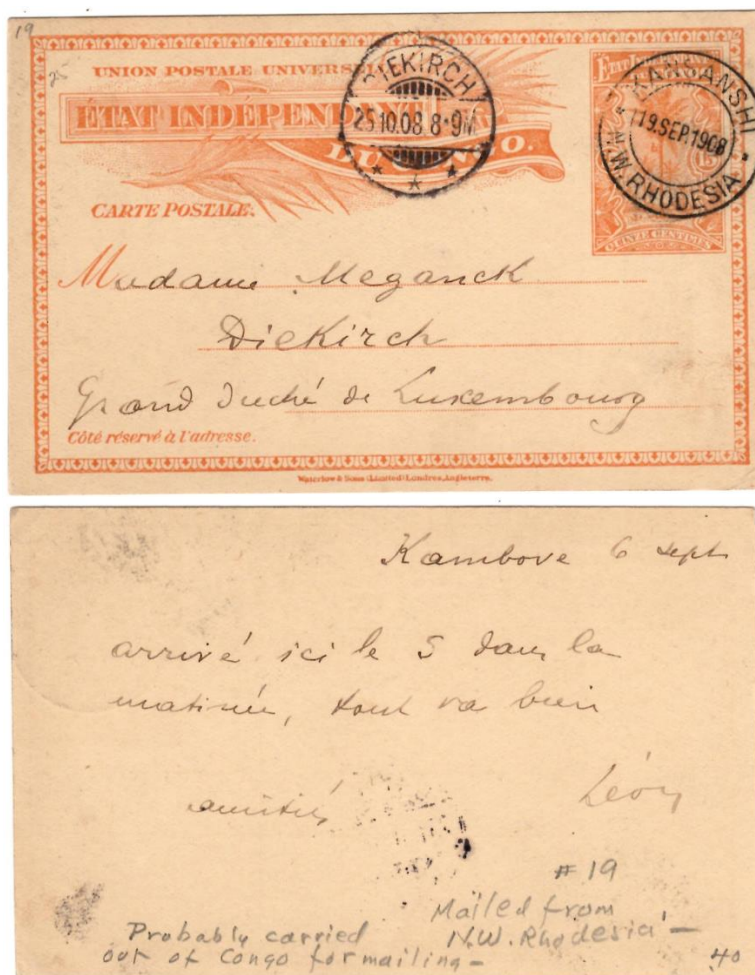 19
25
UNION POSTALE UNIVERSELLE
ÉTAT INDÉPENDANT
DU CONGO.
CARTE POSTALE.
DIEKIRCH
25.10.08.8-9M
ÉTAT INDÉPENDANT
DU CONGO
KANSANSHI
19.SEP.1908
N.W. RHODESIA
15
QUINZE CENTIMES
Madame Meganck
Diekirch
Grand Duché de Luxembourg
Côté réservé à l'adresse.
Waterlow & Sons Limited, Londres, Angleterre.
Kambove 6 sept
arrivé ici le 5 dans la
matinée, tout va bien
amitiés
Léon
#19
Mailed from
N.W. Rhodesia -
Probably carried
out of Congo for mailing -
40